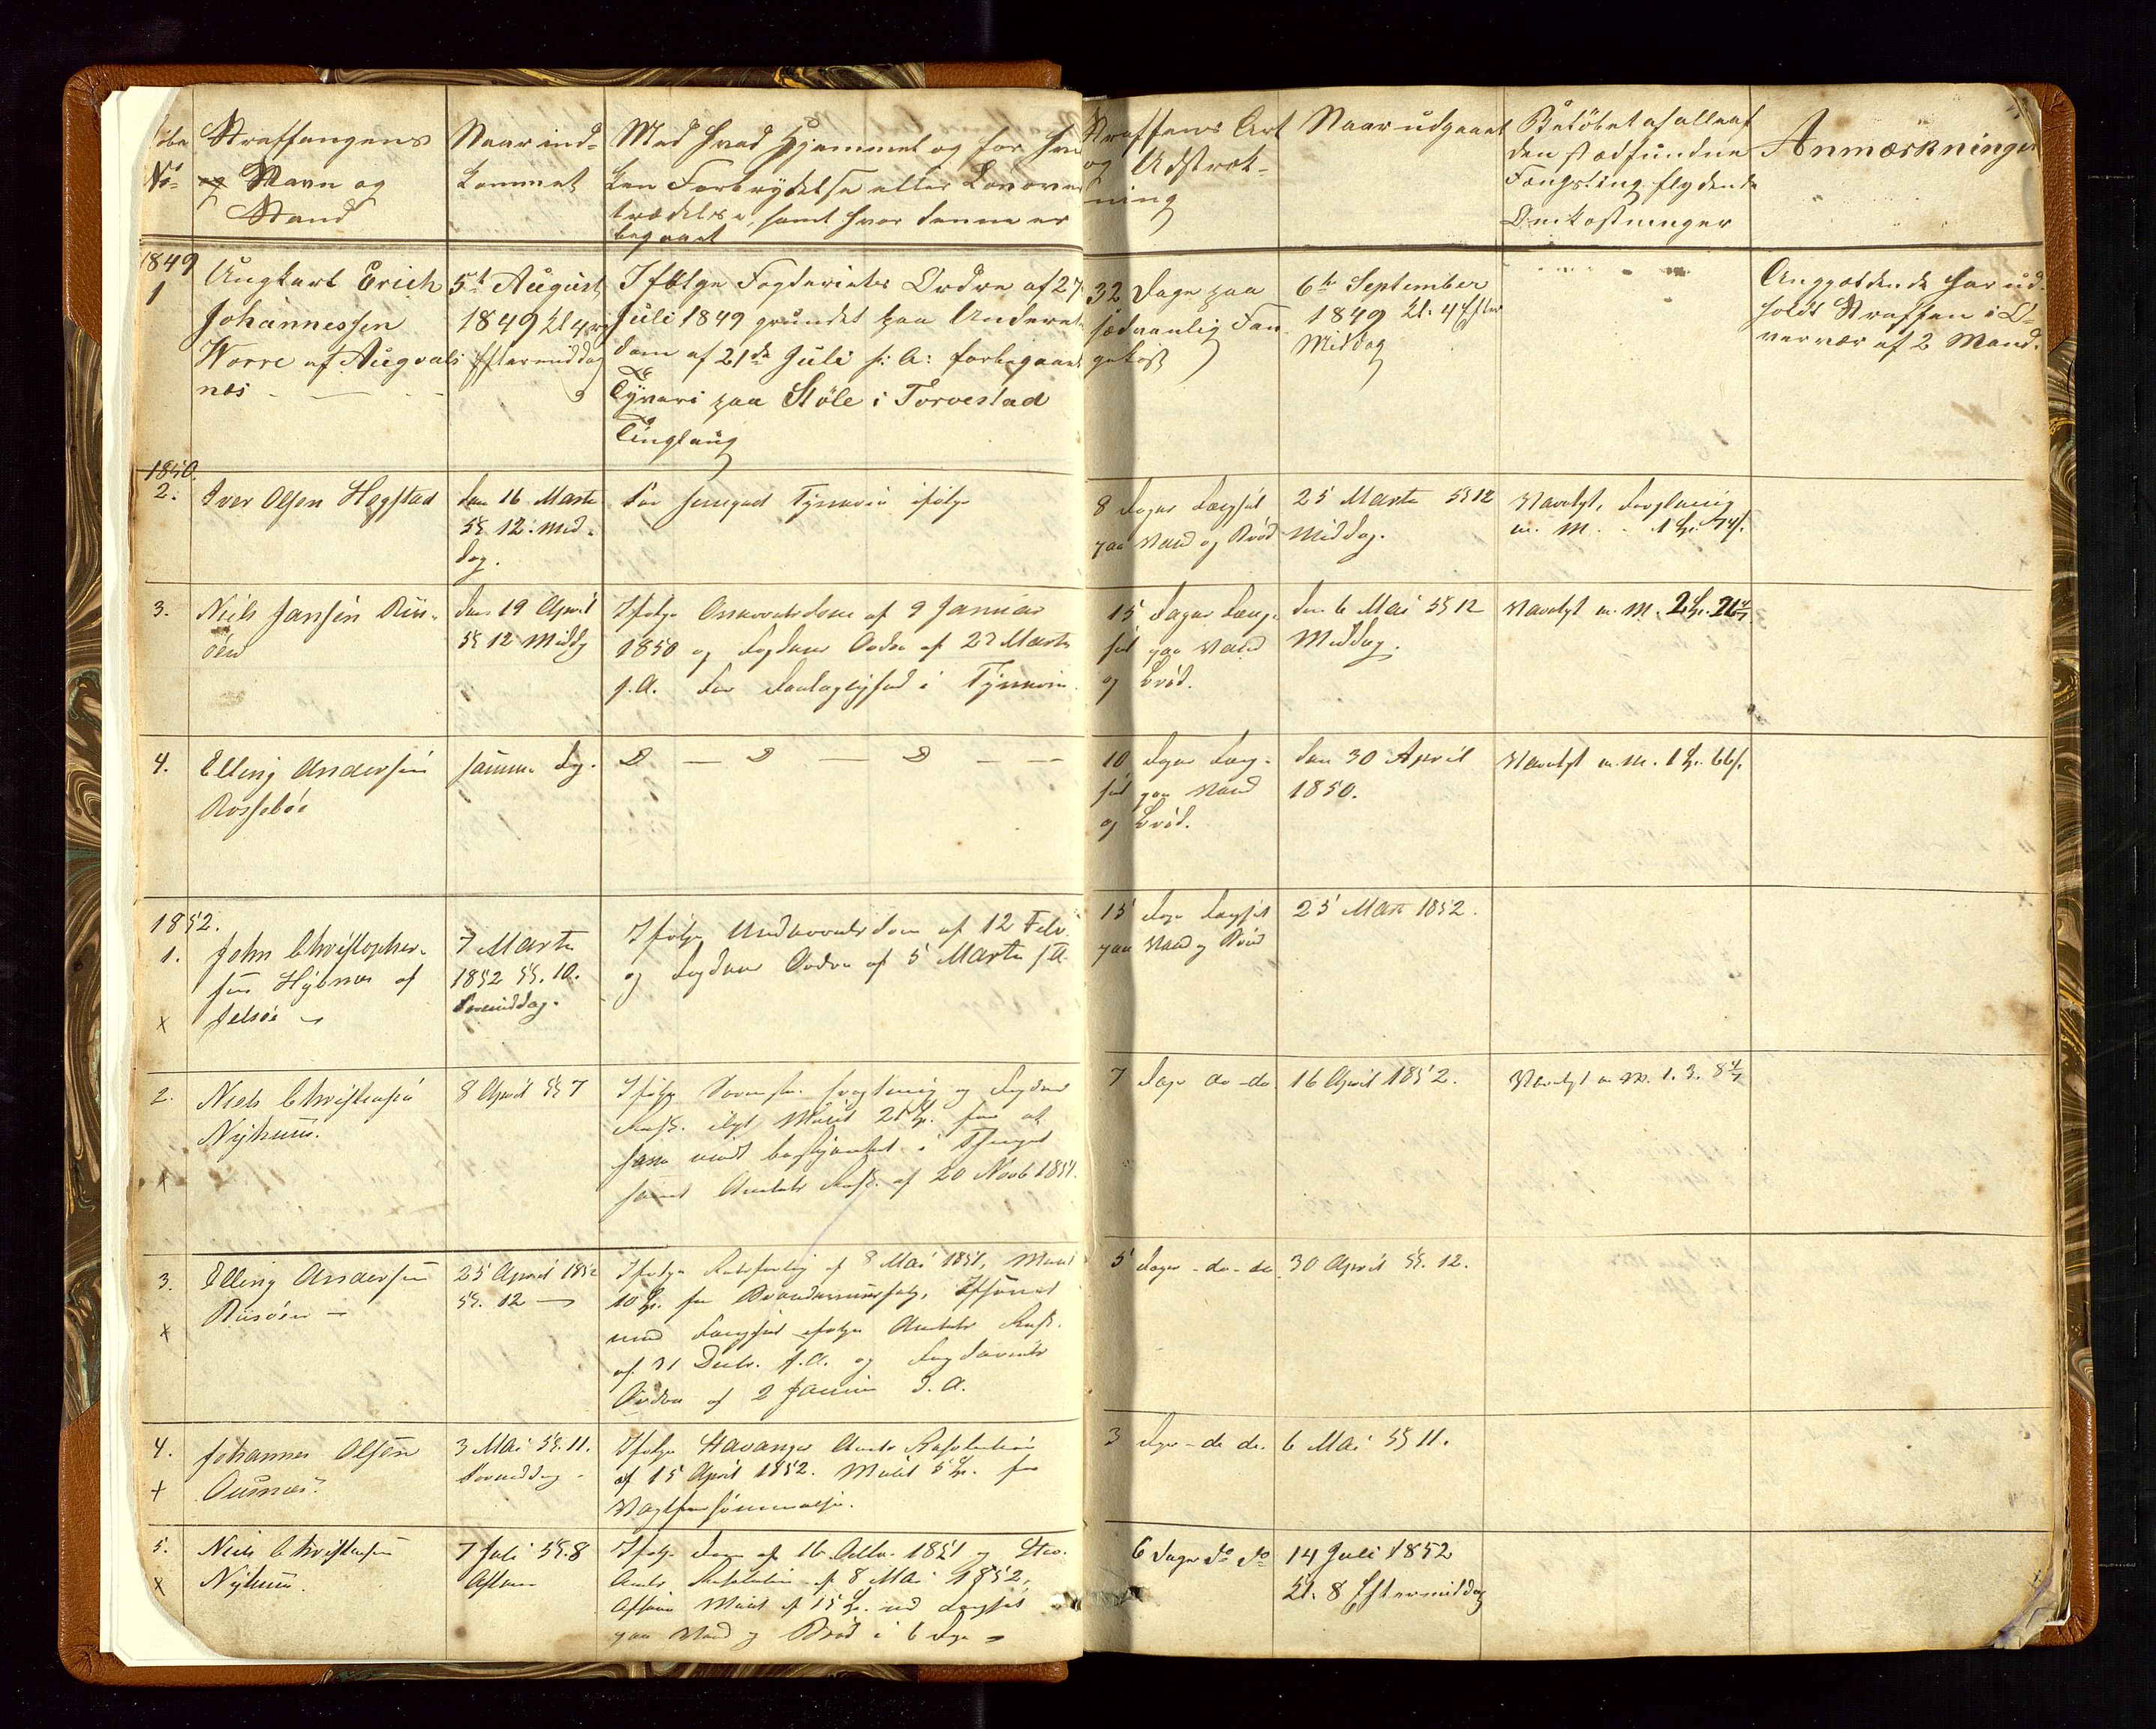 Løbe
No
Straffangens
Navn og
Stand
Naar ind-
kommet
Med hvad Hjemmel og for hvil
ken Forbrydelse eller Lovover
trædelse, samt hvor denne er
begaaet
Straffens Art
og Udstræk-
ning
Naar udgaaet
Beløbet af alle af
den stedfundne
Fængsling flydende
Omkostninger
Anmærkninger
1849
1
Ungkarl Erich
Johannessen
Worre af Augvals
næs
5te August
1849 Kl 4
Eftermiddag
Ifølge Fogderiets Ordre af 27
Juli 1849 grundet paa Underrets
dom af 21de Juli s: A: for begaaet
Tyveri paa Støle i Torvestad
Tinglaug
32 Dage paa
sædvanlig Fan
gekost
6te September
1849 Kl. 4 Efter
Middag
Angjældende har ud-
holdt Straffen i O-
vervær af 2 Mænd.
1850.
2.
Iver Olsen Hegstad
den 16 Marts
Kl 12. Mid-
dag.
For Tyverie ifølge
8 Dages Fængsel
paa Vand og Brød
25 Marts Kl 12
Middag.
Varetægt,
m. M. 1
3.
Niels Jansen
den 19 April
Kl 12 Middg
Ifølge dom af 9 Januar
1850 og Fogdens Ordre af 27 Marts
s.A. for Delagtighed i Tyverie.
15 Dages Fæng-
sel paa Vand
og Brød.
den 6 Mai Kl 12
Middag.
Varetgt m. M. 2
4.
Elling Andersen
Rossebø
samme Dag.
D — D — D — —
10 Dages Fæng-
sel paa Vand
og Brød.
den 30 April
1850.
Varetgt m. M. 1 66
1852.
1.
John Christopher-
sen Hybnes af
Jelsøe
x
7 Marts
1852 Kl. 10.
Formiddag.
Ifølge Underretsdom af 12 Febr.
og Fogdens Ordre af 5 Marts s A.
15 Dage Fængsel
paa Vand og Brød
25 Marts 1852.
2.
x
Niels Christensen
Nyhuus.
8 April Kl 7
Ifølge og Fogdens
Mulct 25 for at
have i
samt Amtets Resl. af 20 Novb 1851.
7 Dage do - do
16 April 1852.
Varetgt m. M. 1. 3. 8
3.
x
Elling Andersen
25 April 1852
Kl. 12 —
Ifølge af 8 Mai 1851, Mulct
10 for Brændeviinssalg,
med Fængsel ifølge Amtets Resl.
af 31 Decbr. f.A. og Fogderiets
Ordre af 2 Januar d. A.
5 Dage - do - do
30 April Kl. 12.
4.
+
Johannes Olsen
Ausnæs
3 Mai Kl. 11.
Formiddag.
Ifølge Stavanger Amts Resolution
af 15 April 1852. Mulct 5 for
Vagtforsømmelse.
3 Dage - do do.
6 Mai Kl 11.
5.
x
Niels Christensen
Nyhuus.
7 Juli Kl. 8
Aften
Ifølge Dom af 16 Octbr. 1851 og Stav.
Amts Resolution af 8 Mai 1852,
Afsone Mulct af 15 ved Fængsel
paa Vand og Brød i 6 Dage
6 Dage do do
14 Juli 1852
Kl. 8 Eftermiddag